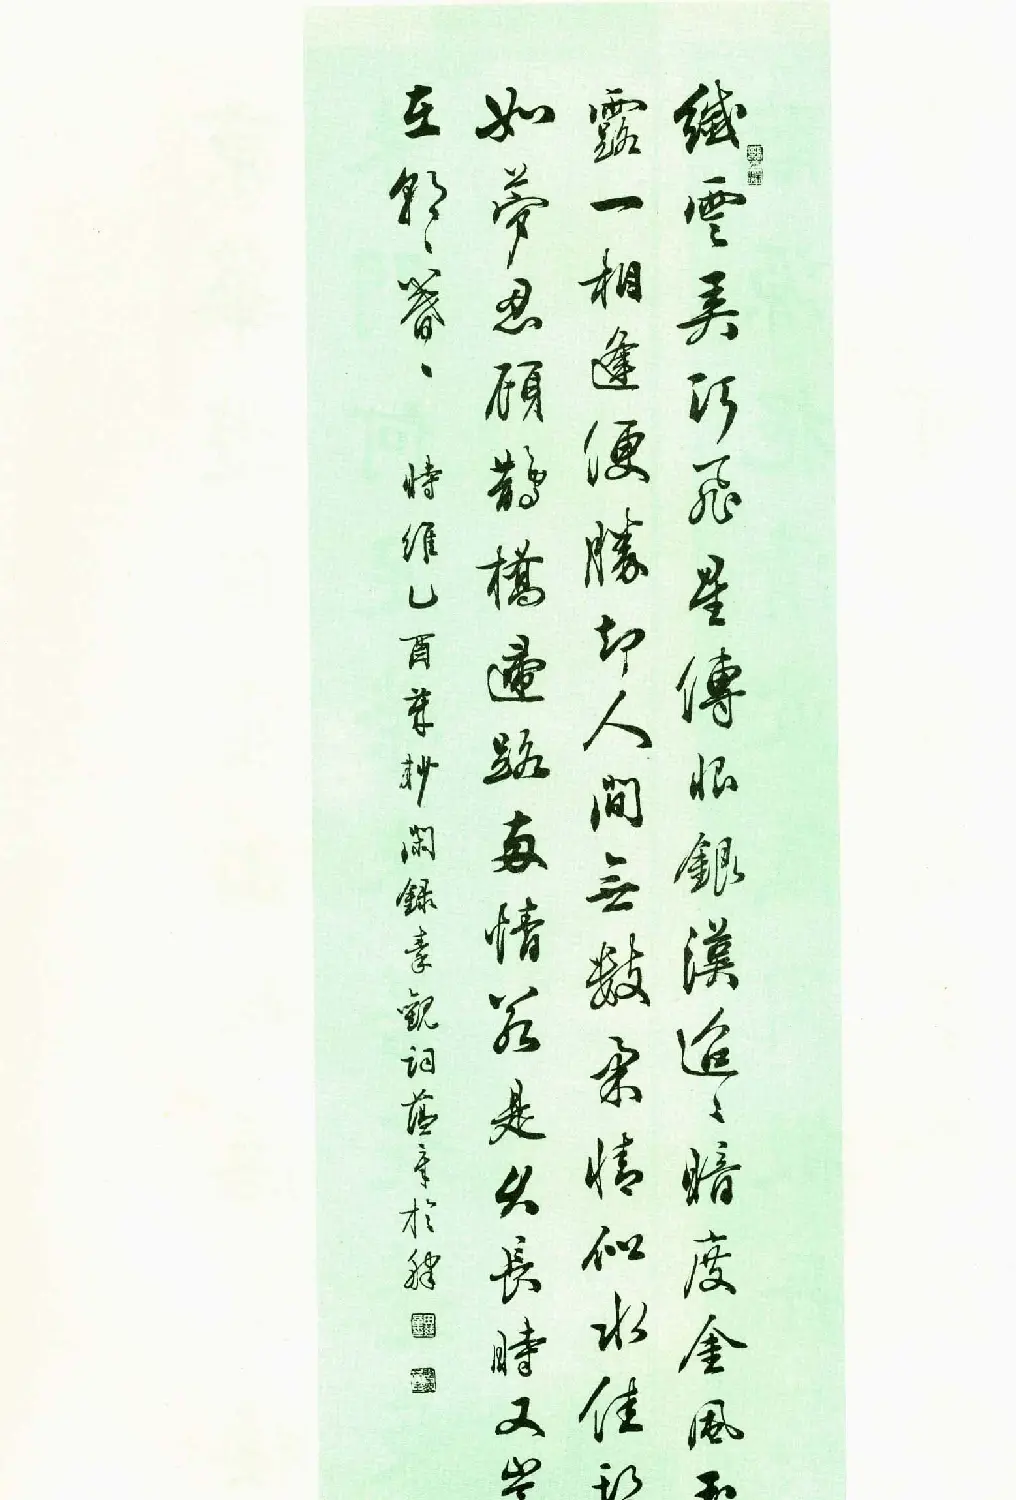 纖雲弄巧飛星傳恨銀漢迢〻暗度金風玉
露一相逢便勝却人間無數柔情似水佳期
如夢忍顧鵲橋歸路兩情若是久長時又豈
在朝〻暮〻 時維乙酉杪閑錄秦觀詞蘊章於